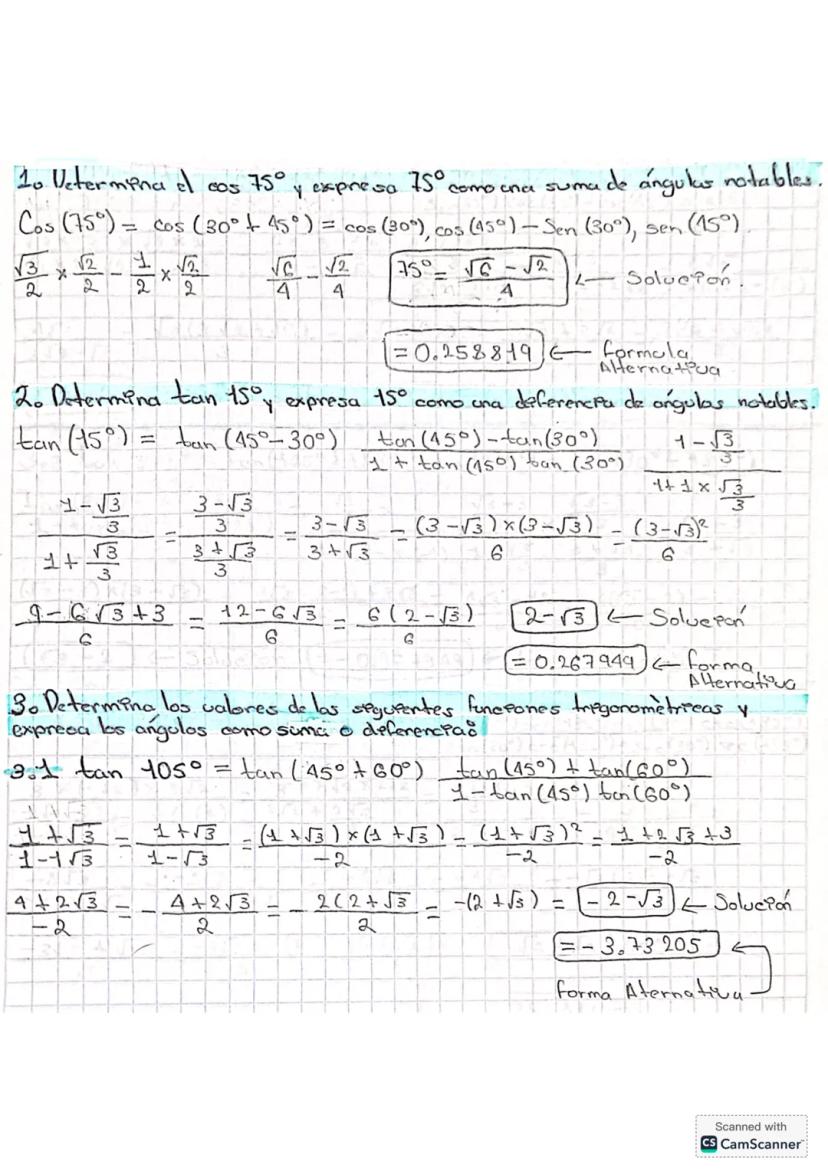 1. Determina el cos 75° y expresa 75° como una suma de ángulos notables.
Cos (75°) = cos (30° + 45°) = cos (30°), cos (45°) - Sen (30°), sen (45°)
√3/2 × √2/2 - 1/2 × √2/2 √6/4 - √2/4 75° = (√6 - √2)/4 ← Solución.
= 0.258819 ← formula
Alternativa
2. Determina tan 15° y expresa 15° como una deferencia de ángulos notables.
tan (15°) = tan (45° - 30°) (tan (45°) - tan (30°))/(1 + tan (45°) tan (30°)) (1 - √3/3)/(1 + 1 × √3/3)
(1 - √3/3)/(1 + √3/3) = ((3 - √3)/3)/((3 + √3)/3) = (3 - √3)/(3 + √3) = ((3 - √3) × (3 - √3))/6 = (3 - √3)²/6
(9 - 6√3 + 3)/6 = (12 - 6√3)/6 = 6 (2 - √3)/6 2 - √3 ← Solución
= 0.267949 ← forma
Alternativa
3. Determina los valores de las siguientes funciones trigonomètricas y
expresa los ángulos como suma o diferencia:
3.1 tan 105° = tan (45° + 60°) (tan (45°) + tan (60°))/(1 - tan (45°) tan (60°))
(1 + √3)/(1 - 1√3) = (1 + √3)/(1 - √3) = ((1 + √3) × (1 + √3))/-2 = (1 + √3)²/-2 = (1 + 2√3 + 3)/-2
(4 + 2√3)/-2 = - (4 + 2√3)/2 = - 2 (2 + √3/2 = -(2 + √3) = - 2 - √3 ← Solución
= - 3.73205 ←
forma Aternativa
Scanned with
CS CamScanner